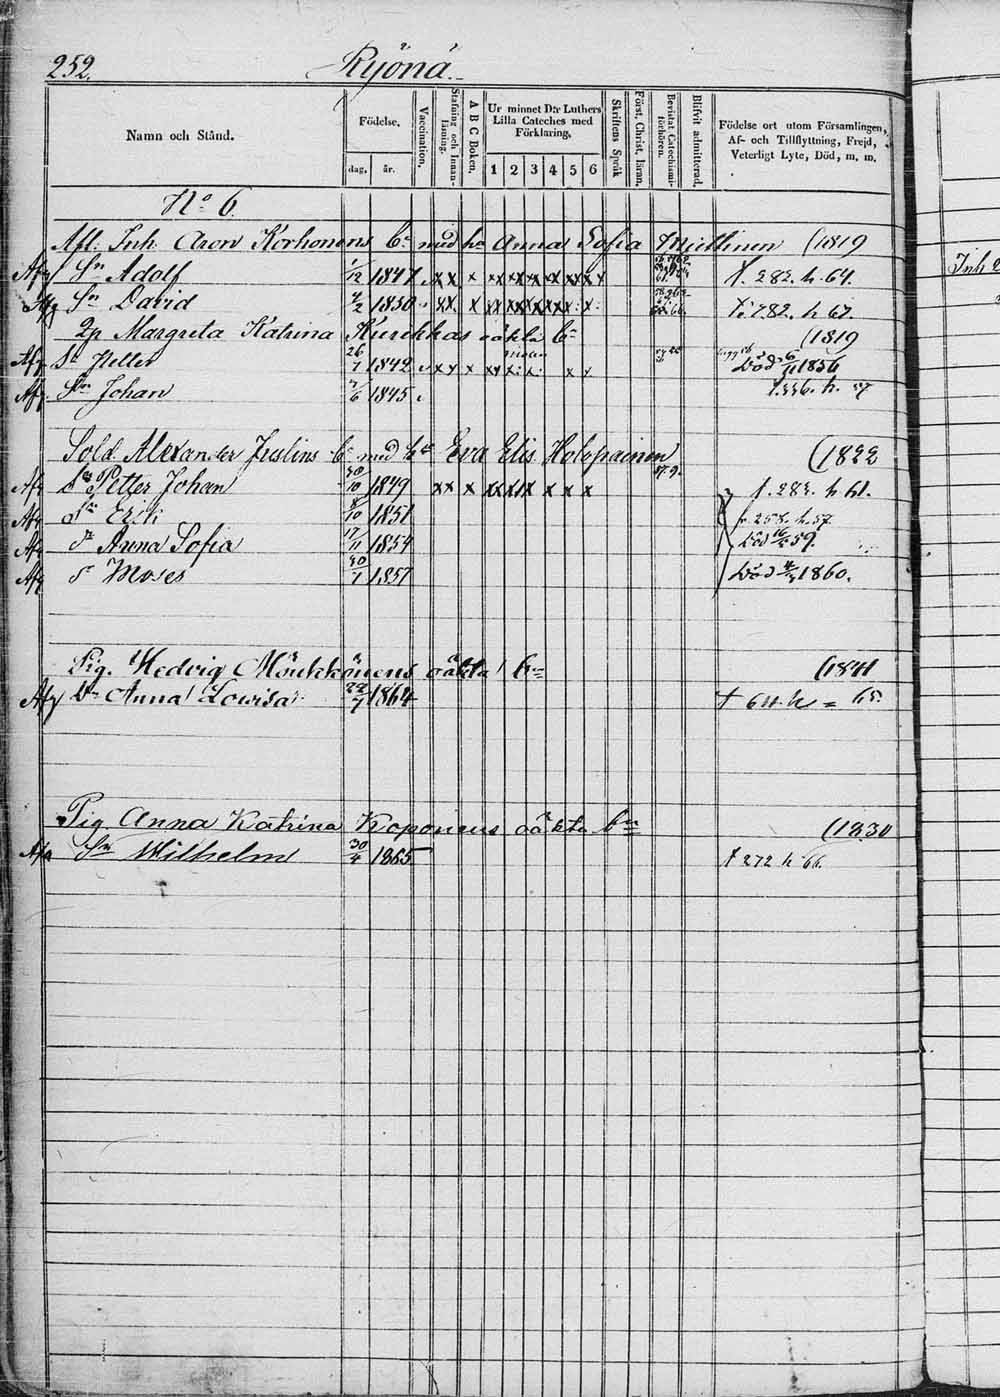 252.
Ryönä.
Namn och Stånd.
Födelse,
dag, år.
Vaccination.
Stafning och Innanläsning.
A B C Boken.
Ur minnet D:r Luthers Lilla Cateches med Förklaring,
1 2 3 4 5 6
Skriftens Språk
Först. Christ. läran.
Bevistat Catechismiförhören.
Blifvit admitterad.
Födelse ort utom Församlingen, Af- och Tillflyttning, Frejd, Veterligt Lyte, Död, m. m.
No 6.
Afl. Inh. Aron Korhonens bn med h. Anna Sofia Miettinen (1819
Sn Adolf 1/12 1847 x x x x x x x x x f. 282. h. 64.
Sn David 4/2 1850 x x x x x x x x 782. h 67.
Margreta Katrina Kurkkas oäkta bn (1819
26/7 1842 Död 6/11 1856
Sn Johan 7/6 1845 h. 57
Sold. Alexander Juslins bn med h. Eva Elis. Holopainen (1822
Petter Johan 30/10 1849 x x x x x x x x x f. 283. h 61.
Erik 8/10 1851 258. h. 57
Anna Sofia 17/11 1854 Död 59
Moses 30/1 1857 Död 1860.
Pig. Hedvig Mönkkönens oäkta bn (1841
Anna Lowisa 22/7 1864 f 64. h = 65.
Pig. Anna Katrina Koponens oäkta bn (1830
Sn Wilhelm 30/4 1865 f 272 h 66.
Inh